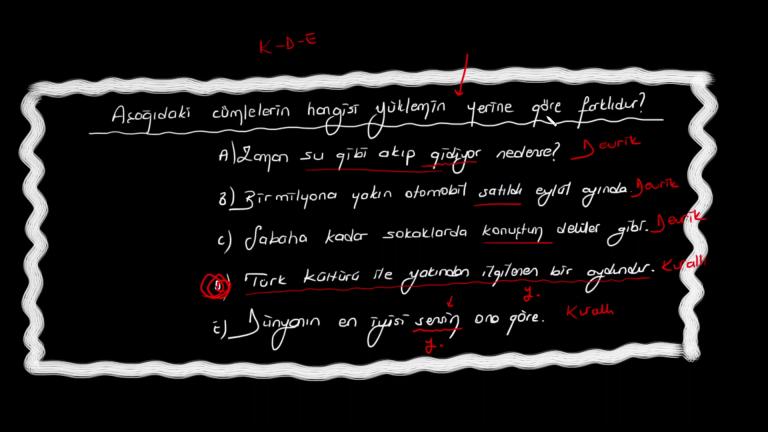 K-D-E
Aşağıdaki cümlelerin hangisi yüklemin yerine göre farklıdır?
A) Zaman su gibi akıp gidiyor nedense? Devrik
B) Bir milyona yakın otomobil satıldı eylül ayında. Devrik
C) Sabaha kadar sokaklarda konuştun deliler gibi. Devrik
D) Türk kültürü ile yakından ilgilenen bir aydındır. Kurallı
y.
E) Dünyanın en iyisi sensin ona göre. Kurallı
y.